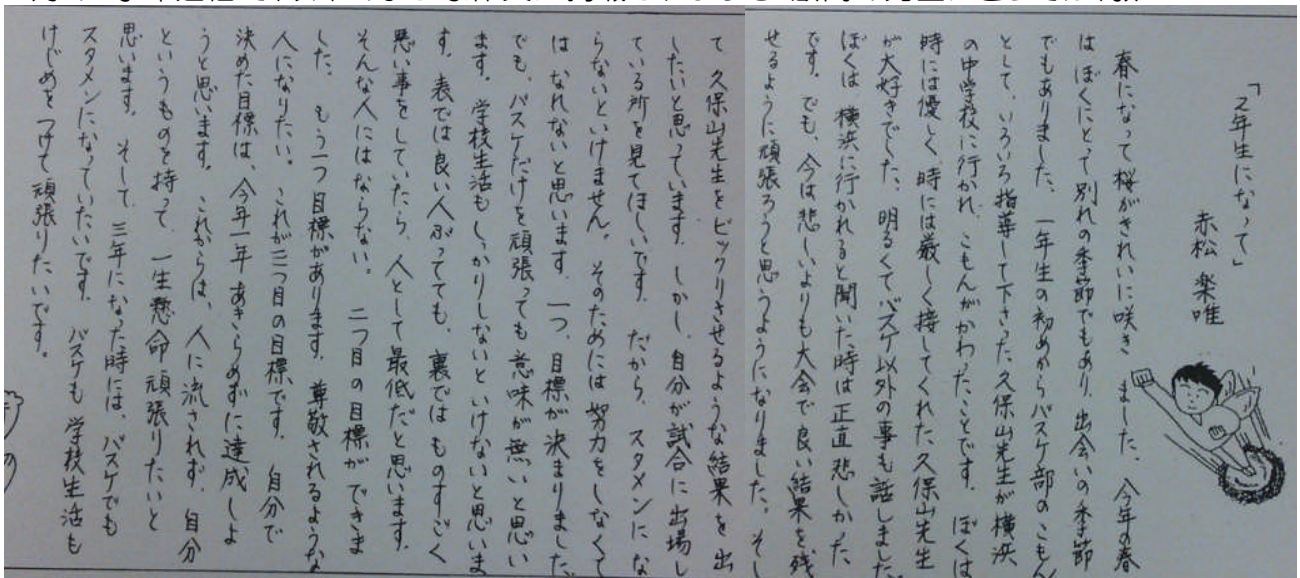 「2年生になって」
赤松 楽唯
春になって桜がきれいに咲きました。今年の春
はぼくにとって別れの季節でもあり、出会いの季節
でもありました。一年生の初めからバスケ部のこもん
として、いろいろ指導して下さった久保山先生が横浜
の中学校に行かれ、こもんがかわったことです。ぼくは
時には優しく、時には厳しく接してくれた久保山先生
が大好きでした。明るくてバスケ以外の事も話しました。
ぼくは横浜に行かれると聞いた時は正直悲しかった
です。でも、今は悲しいよりも大会で良い結果を残
せるように頑張ろうと思うようになりました。そし
て久保山先生をビックリさせるような結果を出
したいと思っています。しかし、自分が試合に出場し
ている所を見てほしいです。だから、スタメンにな
らないといけません。そのためには努力をしなくて
はなれないと思います。一つ、目標が決まりました。
でも、バスケだけを頑張っても意味が無いと思い
ます。学校生活もしっかりしないといけないと思いま
す。表では良い人ぶってても、裏ではものすごく
悪い事をしていたら、人として最低だと思います。
そんな人にはならない。二つ目の目標ができま
した。もう一つ目標があります。尊敬されるような
人になりたい。これが三つ目の目標です。自分で
決めた目標は、今年一年あきらめずに達成しよ
うと思います。これからは、人に流されず、自分
というものを持って、一生懸命頑張りたいと
思います。そして、三年になった時には、バスケでも
スタメンになっていたいです。バスケも学校生活も
けじめをつけて頑張りたいです。